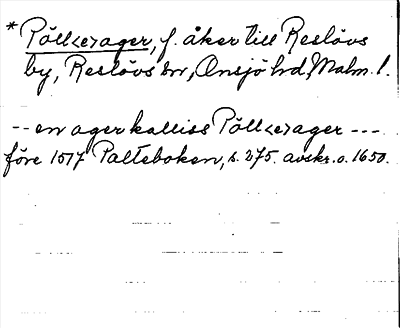 * Pöll<e>ager, f. åker till Reslövs
by, Reslövs sn, Onsjö hd, Malm. l.
-- en ager kalliss Pöll<e>ager ---
före 1517 Palteboken, s. 275. avskr. o. 1650.